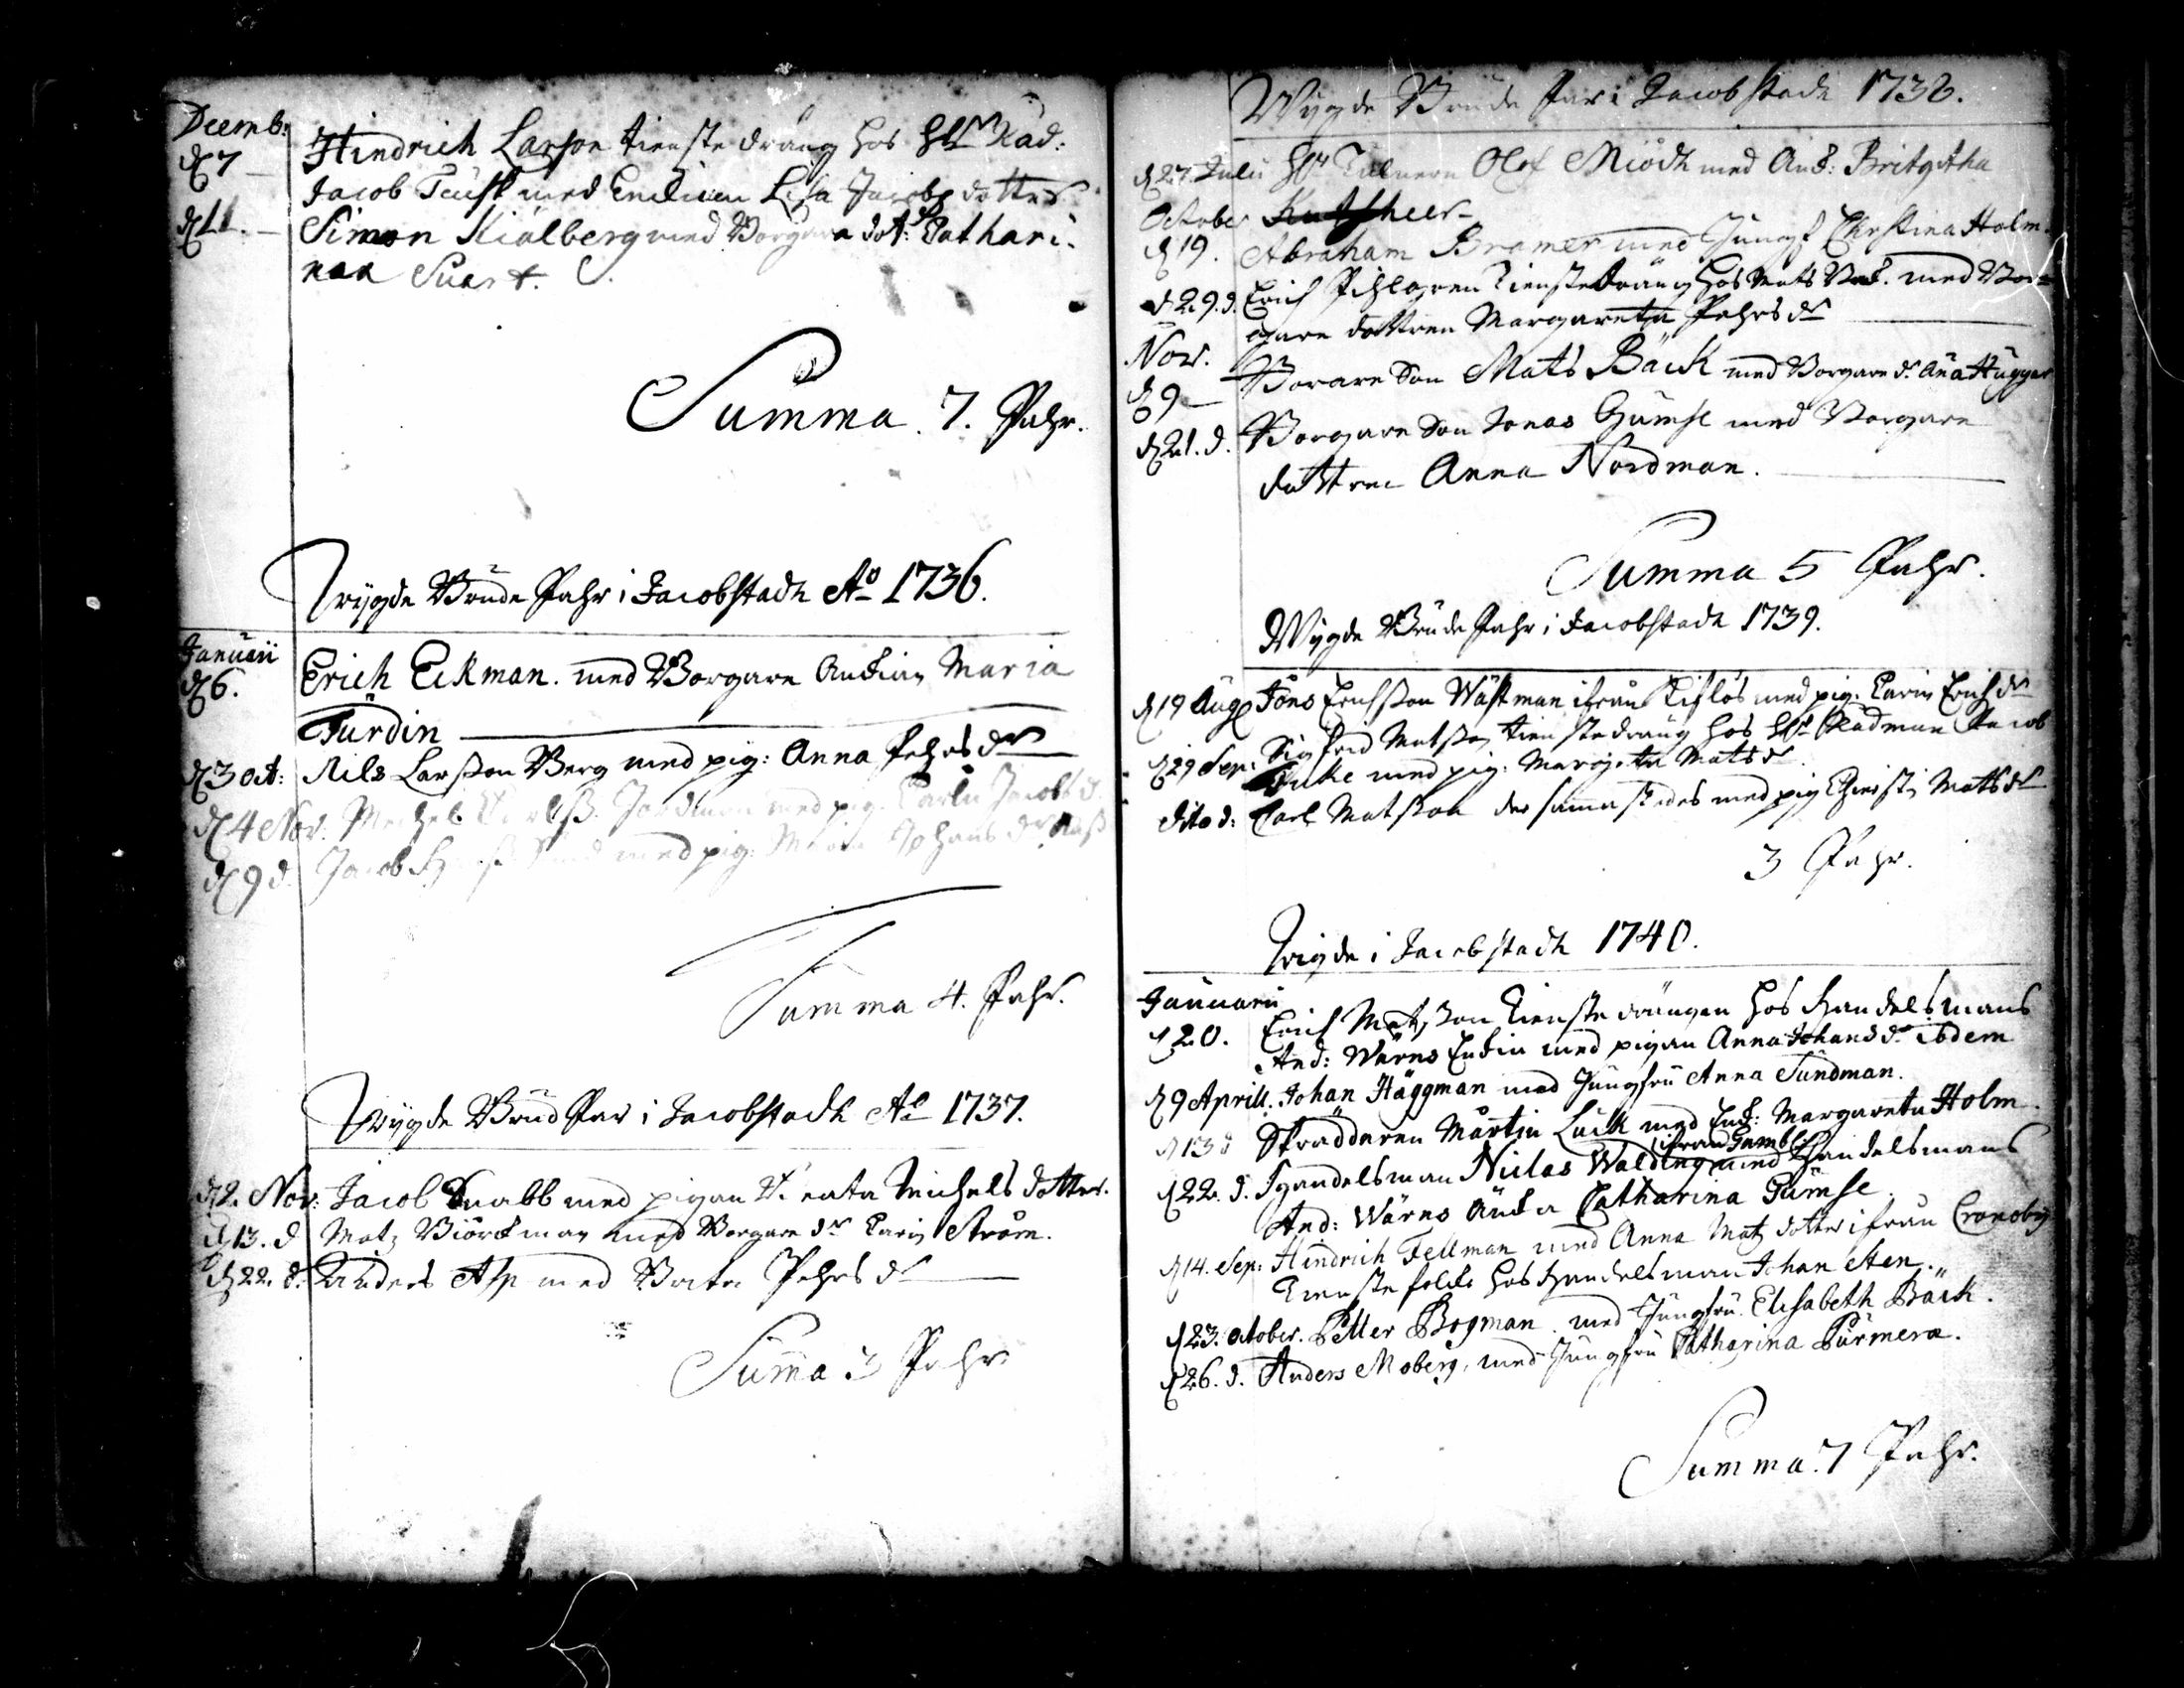 Decemb:
d 7 Hindrich Larson tienste dräng hos Hr Råd:
Jacob med Enckian Lisa Jacobs dotter
d 11. Simon Kiälberg med Borgare dot: Cathari-
naa Suart.
Summa. 7. Pahr.
Wygde Brude Pahr i Jacobstadh Ao 1736.
Januarii
d 6. Erich Eckman. med Borgare Enckian Maria
Turdin
d 3 oct: Nils Larsson Berg med pig: Anna Pehrs dr
d 4 Nov. Michel med pig. Carin Jacobs d.
d 9 d. Jacob med pig: Maria Johans dr
Summa 4. Pahr.
Wygde Brud Par i Jacobstadh Ao 1737.
d 2. Nov: Jacob Snabb med pigan Beata Michels dotter.
d 13. d Matz Biörckman med Borgare dr Carin Ström.
d 22. d: Anders Asp med Brita Pehrs dr
Suma 3 Pahr
Wygde Brude Par i Jacobstadh 1738.
d 27 Julii Hr Olof Miödh med Enck: Britgitha
October
d 19. Abraham Bramer med Jungf Christina Holm.
d 29. d. Erich Tienstedräng hos Mats med Bor-
gare dottren Margareta Pehrs dr
Nov.
d 9 Borare Son Mats Bäck med Borgare dr Ana Huggar
d 21. d. Borgare Son Jonas Gumse med Borgare
dottren Anna Nordman.
Summa 5 Pahr.
Wygde Brude Pahr i Jacobstadh 1739.
d 19 Aug Jöns Erichsson Wästman ifrån med pig. Carin Erichs dr
d 29 Sep: Sigfred Matsson tienstedräng hos Hr Rådman Jacob
med pig. Margeta Mats dr.
dito d: Carl Matsson der samastedes med pig Christi Mats dr
3 Pahr.
Wigde i Jacobstadh 1740.
Januarii
d 20. Erich Matsson Tienste drängen hos Handelsmans
And: Wärns Enckia med pigan Anna Johans dr Ibdem
d 9 Aprill. Johan Häggman med Jungfru Anna Sundman.
d 13 d Skräddaren Martin Läck med Enck: Margareta Holm.
ifrån Gambl:
d 22. d. Handelsman Niclas Walding med Handelsmans
And: Wärns Äncka Catharina Gumse.
d 14. Sep: Hindrich Fellman med Anna Matz dotter ifrån Cronoby
Tienste folck hos Handelsman Johan Aten.
d 23. October. Petter Bogman med Jungfru Elisabeth Bäck.
d 26. d. Anders Moberg, med Jungfru Catharina Purmera.
Summa. 7 Pahr.